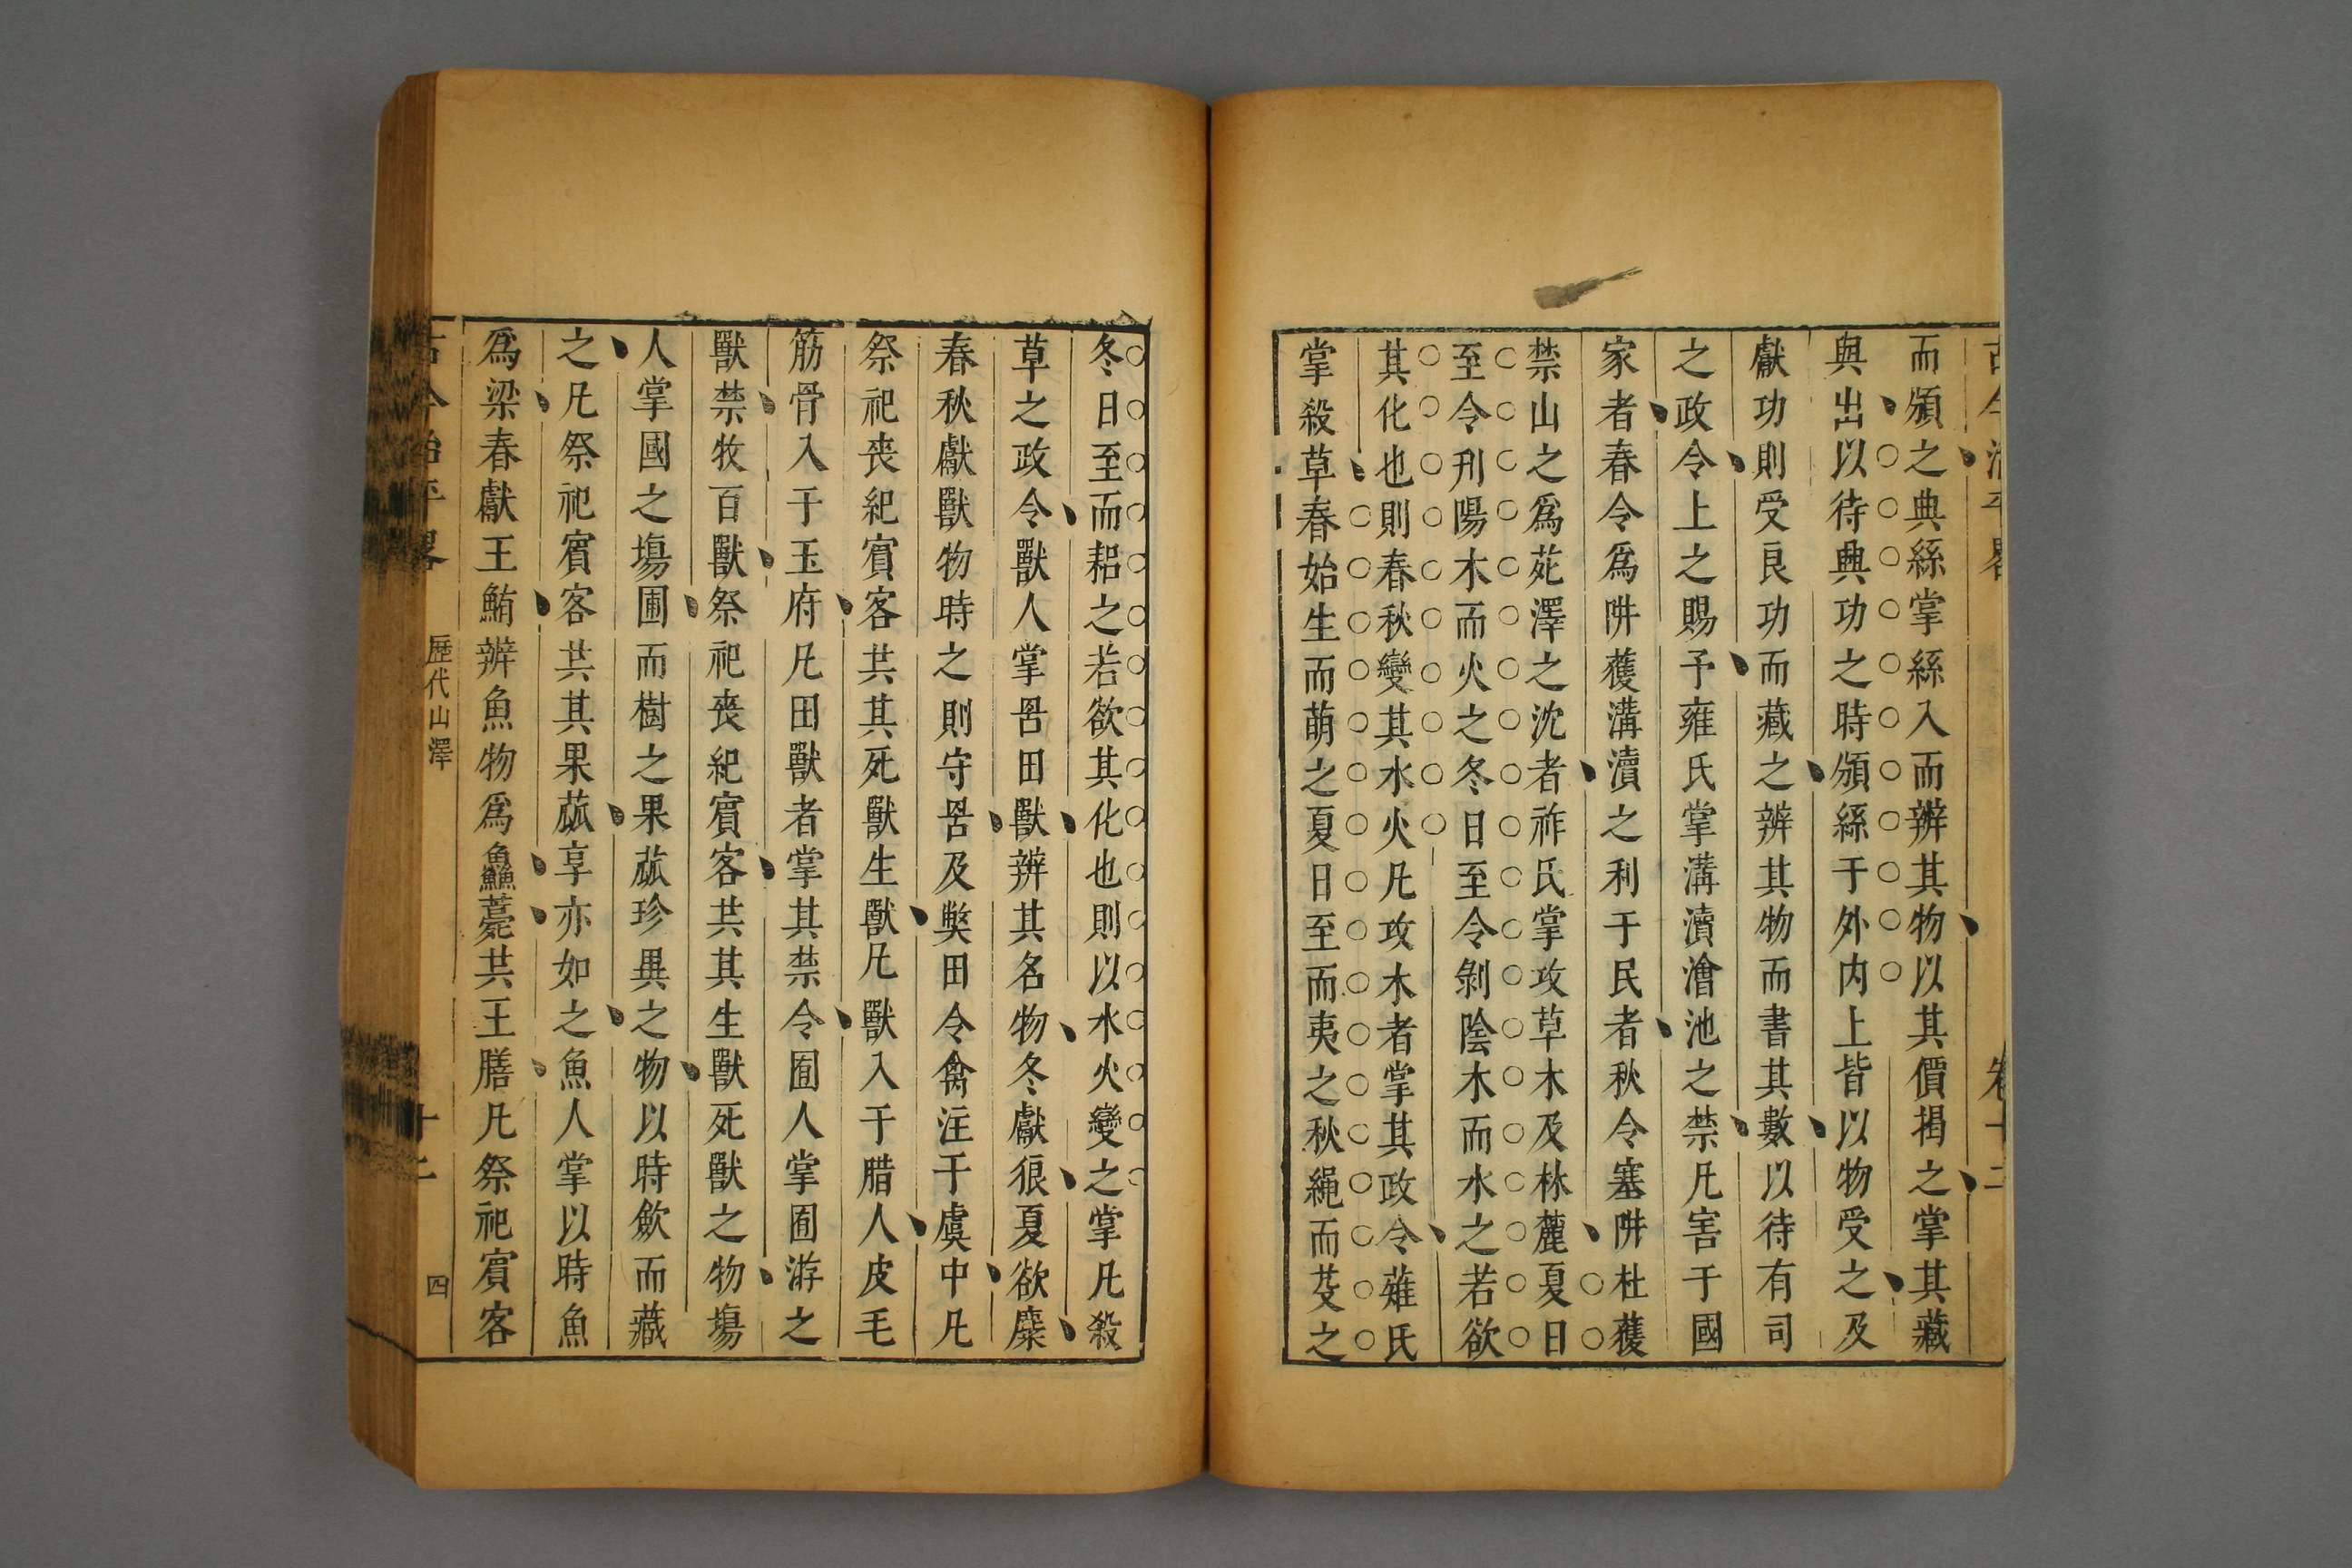 古今治平畧 卷十二
而頒之典絲掌絲入而辨其物以其價揭之掌其藏
與出以待興功之時頒絲于外内上皆以物受之及
獻功則受良功而藏之辨其物而書其數以待有司
之政令上之賜予雍氏掌溝瀆澮池之禁凡害于國
家者春令爲阱擭溝瀆之利于民者秋令塞阱杜擭
禁山之爲苑澤之沈者祚氏掌攻草木及林麓夏日
至令刋陽木而火之冬日至令剝陰木而水之若欲
其化也則春秋變其水火凡攻木者掌其政令薙氏
掌殺草春始生而萌之夏日至而夷之秋繩而芟之
冬日至而耜之若欲其化也則以水火變之掌凡殺
草之政令獸人掌罟田獸辨其名物冬獻狼夏獻麋
春秋獻獸物時之則守罟及獘田令禽注于虞中凡
祭祀丧紀賓客共其死獸生獸凡獸入于腊人皮毛
筋骨入于玉府凡田獸者掌其禁令囿人掌囿游之
獸禁牧百獸祭祀丧紀賓客共其生獸死獸之物塲
人掌國之塲圃而樹之果蓏珍異之物以時歛而藏
之凡祭祀賓客共其果蓏享亦如之魚人掌以時魚
爲梁春獻王鮪辨魚物爲鱻薧共王膳凡祭祀賓客
古今治平畧 歷代山澤 十二 四